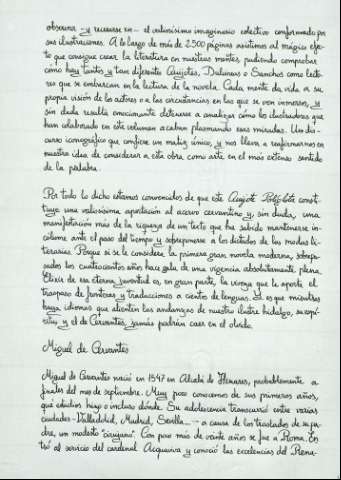 observa —y recrearse en— el valiosísimo imaginario colectivo conformado por
sus ilustraciones. A lo largo de más de 2500 páginas asistimos al mágico efec-
to que consigue crear la literatura en nuestras mentes, pudiendo comprobar
cómo hay tantos y tan diferentes Quijotes, Dulcineas o Sanchos como lecto-
res que se embarcan en la lectura de la novela. Cada mente da vida a su
propia visión de los actores o a las circunstancias en las que se ven inmersos, y
sin duda resulta emocionante detenerse a analizar cómo los ilustradores que
han colaborado en este volumen acaban plasmando esas miradas. Un dis-
curso iconográfico que confiere un matiz único, y nos lleva a reafirmarnos en
nuestra idea de considerar a esta obra como arte en el más extenso sentido
de la palabra.
Por todo lo dicho estamos convencidos de que este Quijote Políglota const-
ituye una valiosísima aportación al acervo cervantino y, sin duda, una
manifestación más de la riqueza de un texto que ha sabido mantenerse in-
cólume ante el paso del tiempo y sobreponerse a los dictados de las modas li-
terarias. Porque si se le considera la primera gran novela moderna, sobrepa-
sados los cuatrocientos años hace gala de una vigencia absolutamente plena.
Elixir de esa eterna juventud es, en gran parte, la viveza que le aporta el
traspaso de fronteras y traducciones a cientos de lenguas. Si es que mientras
haya idiomas que alienten las andanzas de nuestro ilustre hidalgo, su espí-
ritu, y el de Cervantes, jamás podrán caer en el olvido.
Miguel de Cervantes
Miguel de Cervantes nació en 1547 en Alcalá de Henares, probablemente a
finales del mes de septiembre. Muy poco conocemos de sus primeros años,
qué estudios hizo o incluso dónde. Su adolescencia transcurrió entre varias
ciudades -Valladolid, Madrid, Sevilla...- a causa de los traslados de su pa-
dre, un modesto "cirujano". Con poco más de veinte años se fue a Roma. En-
tró al servicio del cardenal Acquaviva y conoció las excelencias del Rena-